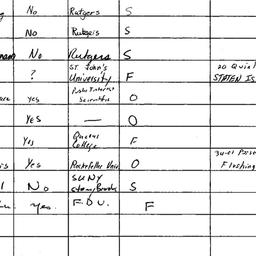 No Rutgers S
No Rutgers S
No Rutgers S
? St. John's University F
20 Quin
STATEN IS
yes Scientific O
YES — O
Yes Queens College F
Yes Rockefeller Univ O
Flushing
No SUNY Stony Brook S
yes. F.D.U. F